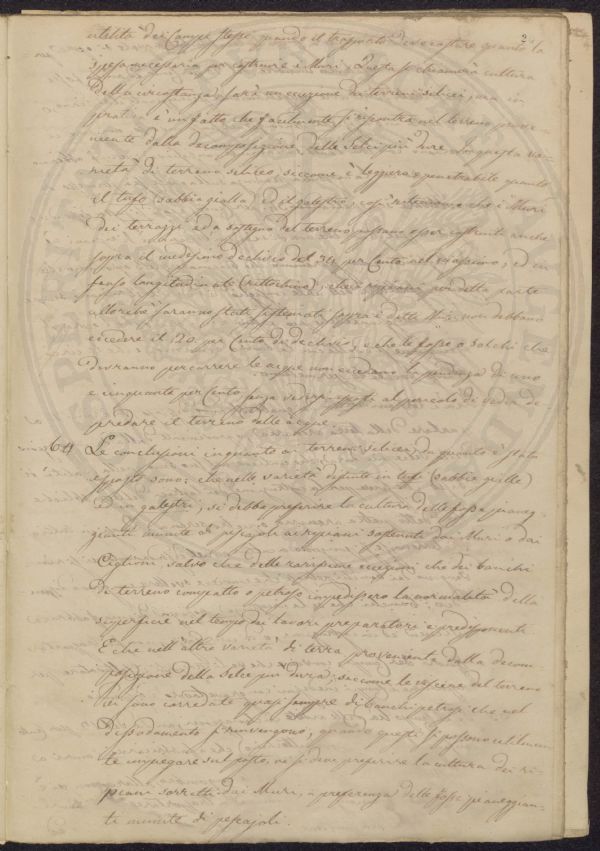 2
utilità dei Campi stessi, quando il trasporto deve costare quanto la
spesa necessaria per costruire i Muri. Questa si chiamerà cultura
della circostanza, sarà un eccezione dei terreni silicei, ma in
pratica è un fatto che facilmente si riscontra nel terreno prove
niente dalla decomposizione delle Selci più dure. In questa va
rietà di terreno siliceo, siccome è leggera e penetrabile quanto
il tufo (sabbia gialla) ed il galestro, così riteniamo che i Muri
dei terrazzi ed a sostegno del terreno possano esser costruiti anche
sopra il medesimo declivio del 30 per Cento nel massimo, ed in
senso longitudinale (rittochino), che i ripiani poi della parte
allorchè saranno stati sistemati sopra i detti Muri non debbano
eccedere il 20 per Cento di declivio, e che le fosse o solchi che
dovranno percorrere le acque non eccedano la pendenza di uno
e cinquanta per Cento senza esser esposti al pericolo di veder de
predare il terreno dalle acque.
64 Le conclusioni in quanto ai terreni silicei da quanto è stato
esposto sono: che nelle varietà distinte in tufo (sabbie gialle)
ed in galestri, si debba preferire la cultura delle fosse pianeg
gianti munite di pescajoli ai ripiani sostenuti dai Muri o dai
Ciglioni salvo che delle rarissime eccezioni che dei banchi
di terreno compatto o petroso impedissero la normalità della
superficie nel tempo dei lavori preparatori e predisponenti.
E che nell'altra varietà di terra proveniente dalla decom
posizione della Selce più dura; siccome le viscere del terreno
ne sono corredate quasi sempre di banchi petrosi che nel
dissodamento si rinvengono, quando questi si possono utilmen
te impiegare sul posto, vi si deve preferire la cultura dei ri
piani sorretti dai Muri, a preferenza delle fosse pianeggian
ti munite di pescajoli.